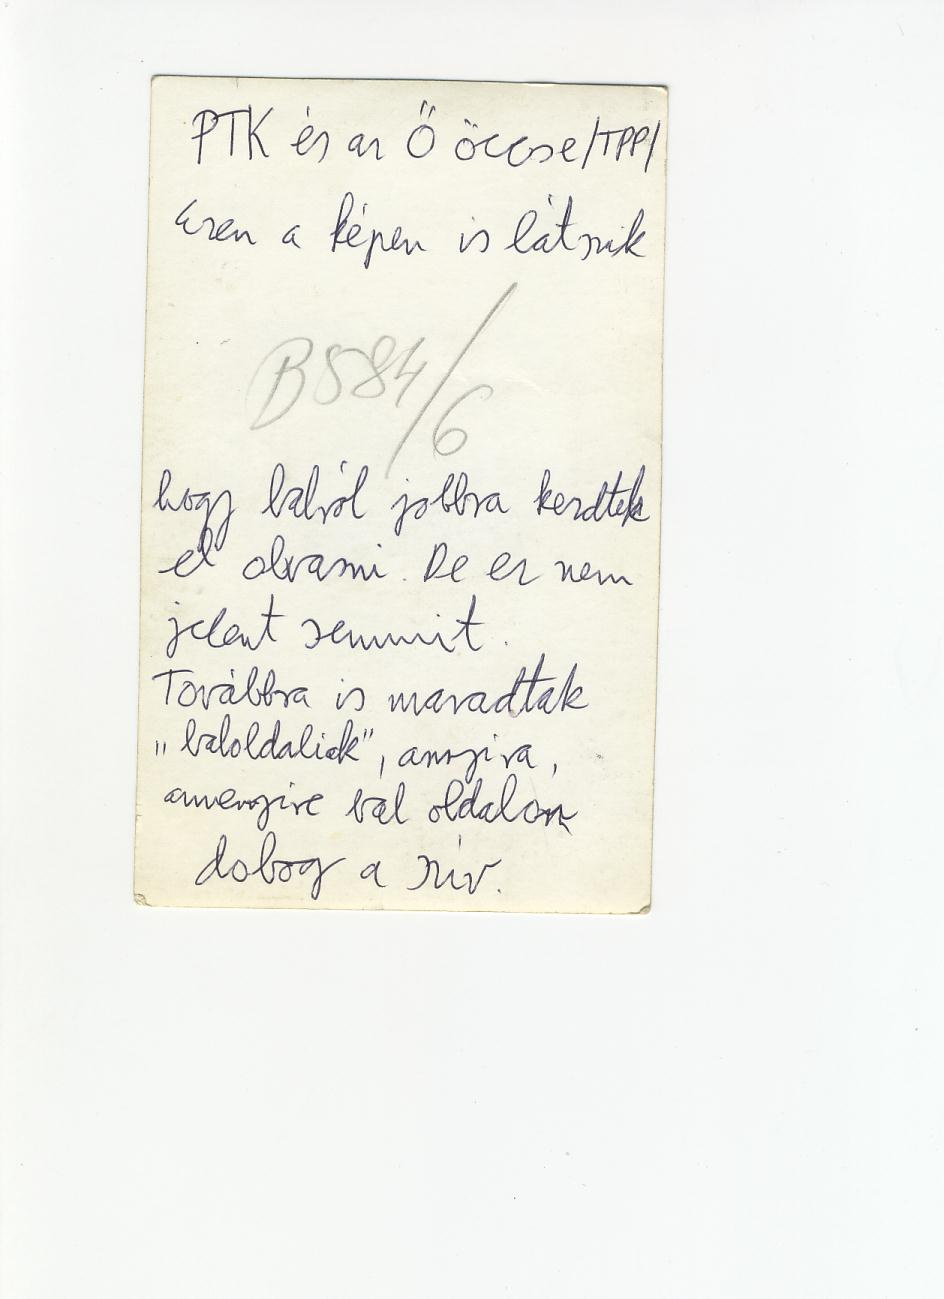 PTK és az Ő öccse /TPP/
Ezen a képen is látszik
B584/6
hogy balról jobbra kezdtek
el olvasni. De ez nem
jelent semmit.
Továbbra is maradtak
„baloldaliak”, annyira,
amennyire bal oldalon
dobog a szív.